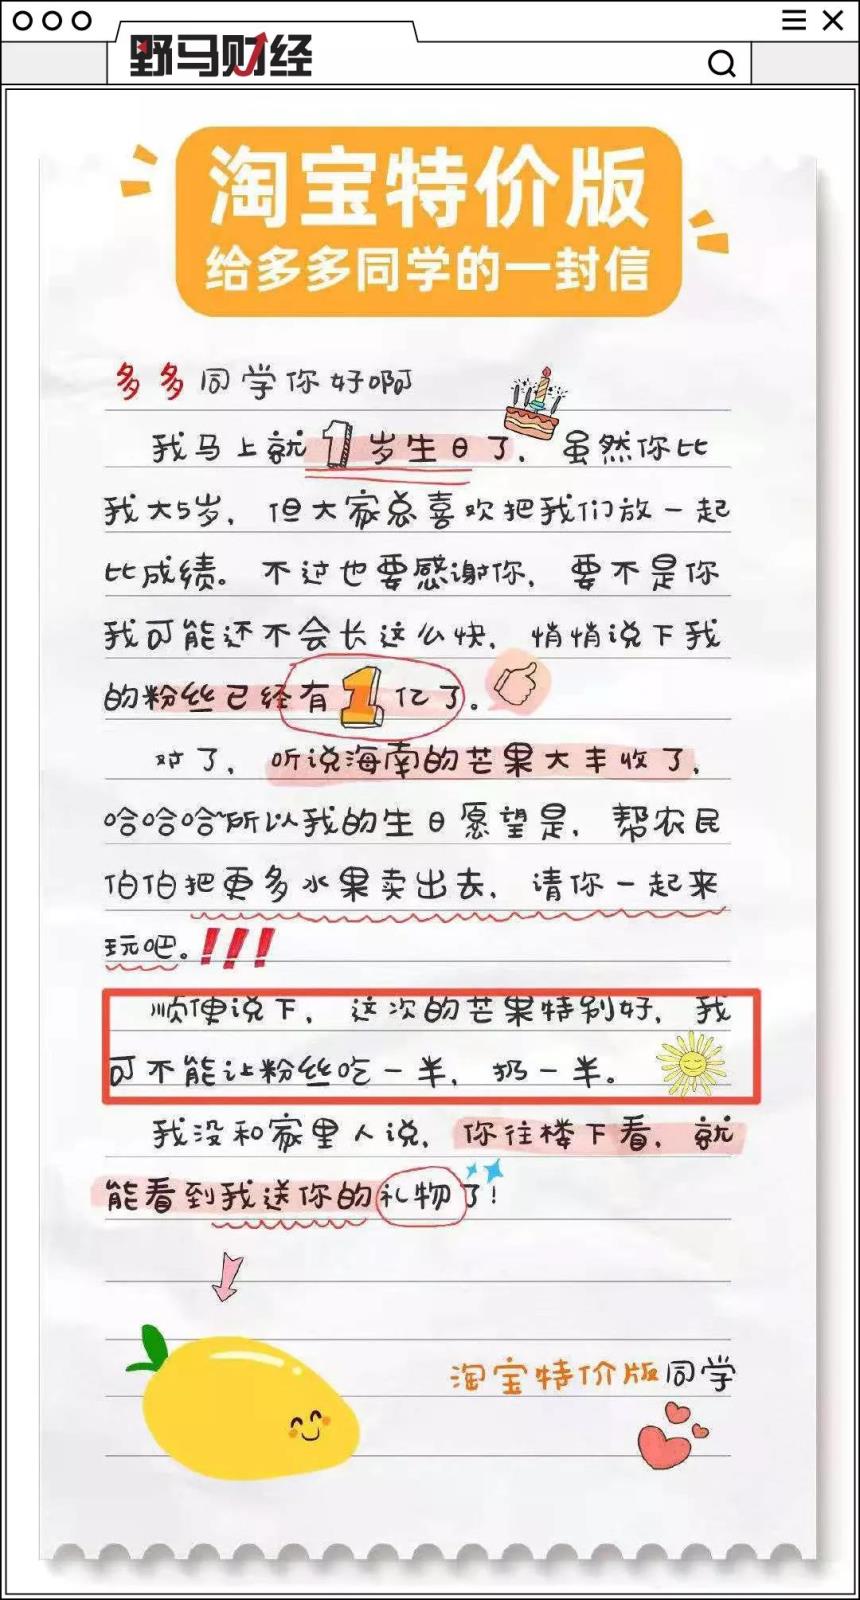 野马财经
淘宝特价版
给多多同学的一封信
多多同学你好啊
我马上就1岁生日了，虽然你比
我大5岁，但大家总喜欢把我们放一起
比成绩。不过也要感谢你，要不是你
我可能还不会长这么快，悄悄说下我
的粉丝已经有1亿了。
对了，听说海南的芒果大丰收了，
哈哈哈~所以我的生日愿望是，帮农民
伯伯把更多水果卖出去，请你一起来
玩吧。!!!
顺便说下，这次的芒果特别好，我
可不能让粉丝吃一半，扔一半。
我没和家里人说，你往楼下看，就
能看到我送你的礼物了！
淘宝特价版同学